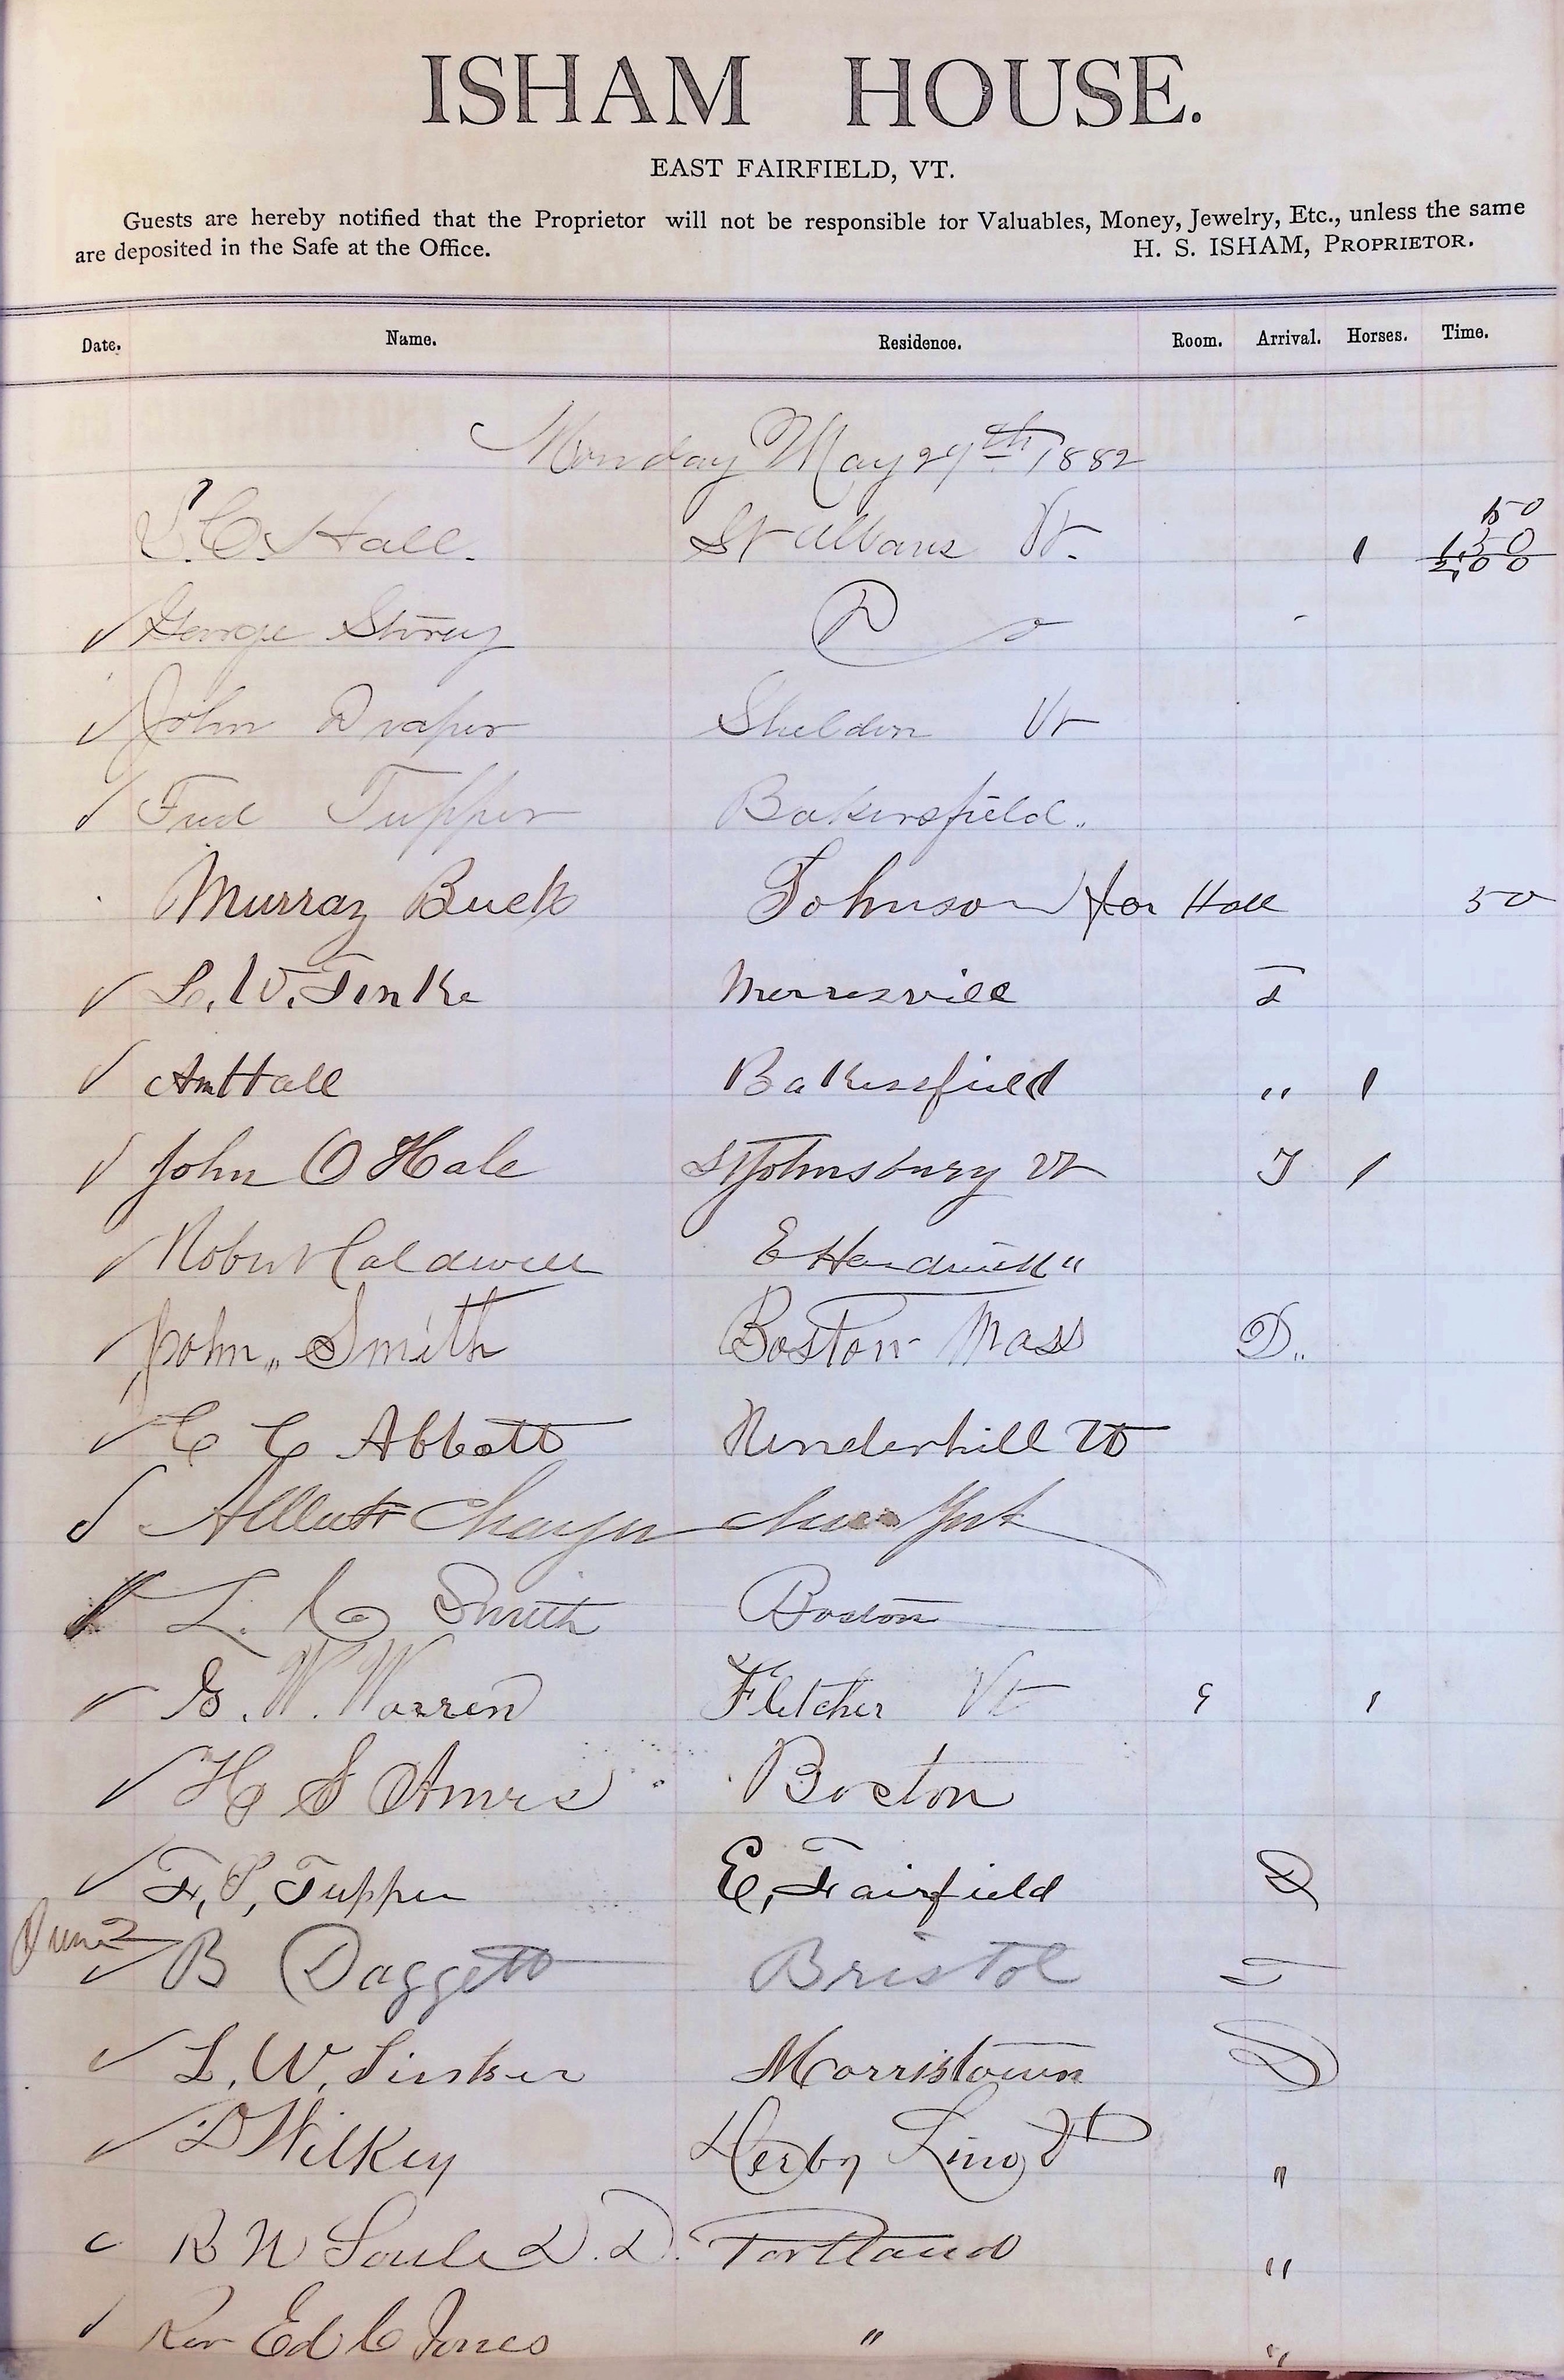 ISHAM HOUSE.
EAST FAIRFIELD, VT.
Guests are hereby notified that the Proprietor will not be responsible for Valuables, Money, Jewelry, Etc., unless the same
are deposited in the Safe at the Office. H. S. ISHAM, PROPRIETOR.
Date. Name. Residence. Room. Arrival. Horses. Time.
Monday May 29th 1882
50
S. C. Hall. St Albans Vt. 1 1,50
2,00
George Storey
John Draper Sheldon Vt
Fred Tupper Bakersfield.
Murray Buck Johnson for Hall 50
L. W. Morresville
Hall Bakersfield " 1
John O Hale St Johnsbury Vt 1
Robert Caldwell E Hardwick "
John Smith Boston Mass D
C C Abbott Underhill Vt
New York
L. C Smith Boston
G. W. Warren Fletcher Vt 9 1
H S Ames Boston
F. P. Tupper E. Fairfield D
June 2
B Daggett Bristol
L. W. Morristown D
D Wilkey Derby Line Vt "
R N Soule D. D. Portland "
Rev Ed C Jones " "